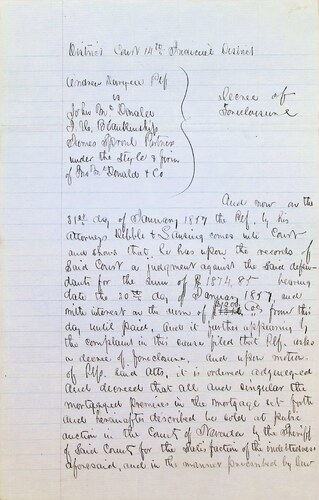 District Court 14th Judicial District
Andrew Plff
vs
John McDonald
Blankenship
James Sproul Partners
under the style & firm
of Jno McDonald & Co
Decree of
Foreclosure
And now on the
31st day of January 1857 the Plf. by his
Attorneys Dibble & Lansing comes into Court
and shows that he has upon the records of
Said Court a judgment against the said defen-
dants for the sum of $1874.85 bearing
date the 20th day of January 1857, and
with interest on the sum of from this
day until paid, And it further appearing by
the complaint in this cause filed that Plf. asks
a decree of foreclosure, and upon motion
of Plfs. said Atts, it is ordered adjudged
And decreed that all and singular the
mortgaged premises in the mortgage set forth
and hereinafter described be sold at public
auction in the County of Nevada by the Sheriff
of Said County for the satisfaction of the indebtedness
aforesaid, and in the manner prescribed by law